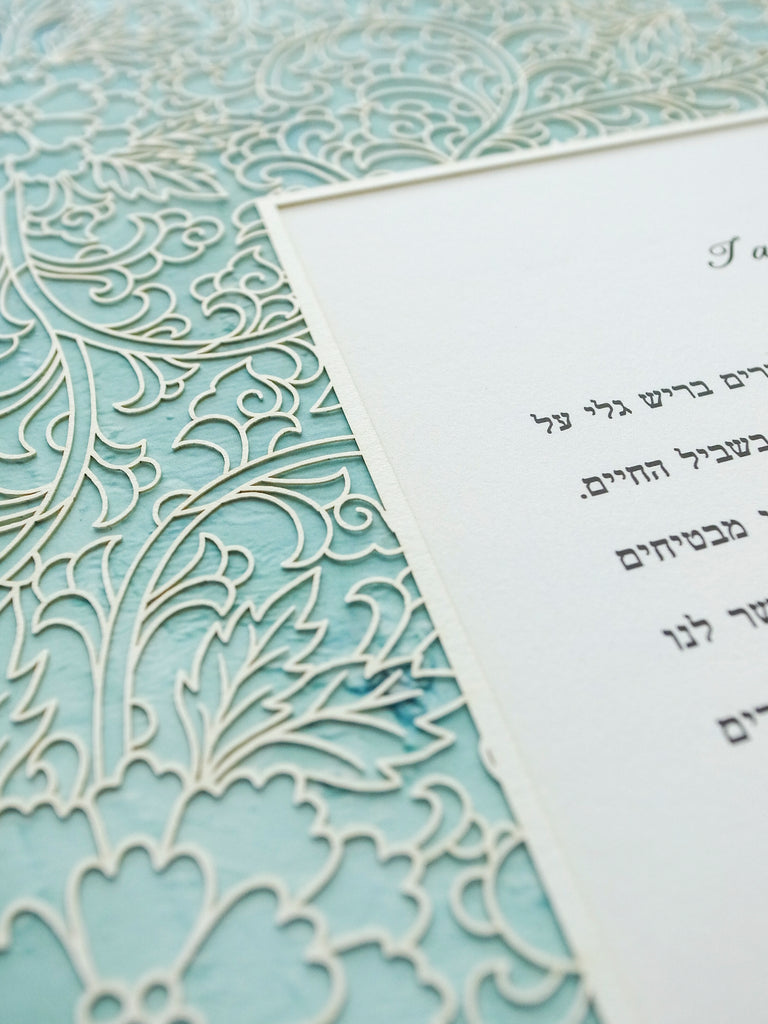 I a
רים בריש גלי על
בשביל החיים.
מבטיחים
שר לנו